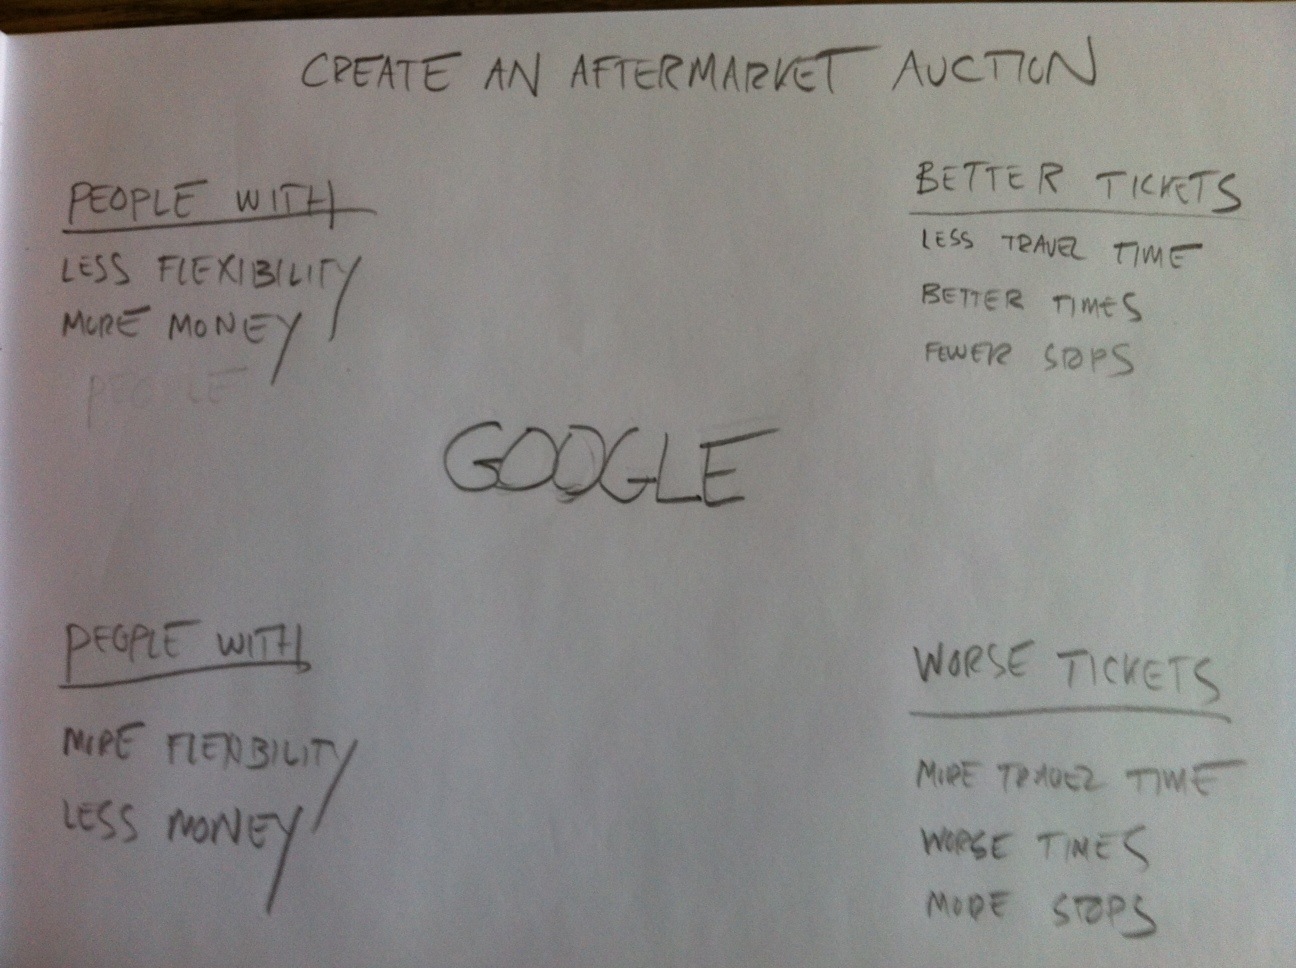 CREATE AN AFTERMARKET AUCTION
PEOPLE WITH
LESS FLEXIBILITY
MORE MONEY
PEOPLE
BETTER TICKETS
LESS TRAVEL TIME
BETTER TIMES
FEWER STOPS
GOOGLE
PEOPLE WITH
MORE FLEXIBILITY
LESS MONEY
WORSE TICKETS
MORE TRAVEL TIME
WORSE TIMES
MORE STOPS